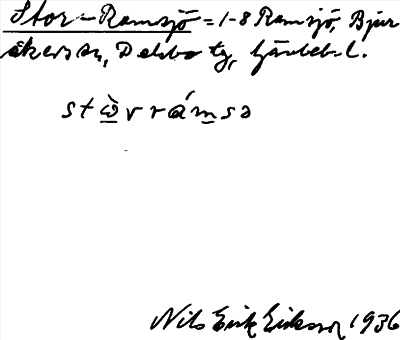 Stor-Ramsjö = 1-8 Ramsjö, Bjur
åkers sn, Delsbo tg, Gävleb. l.
st ὼ̲ v r á m̲ s ə
Nils Erik Eriksson 1936